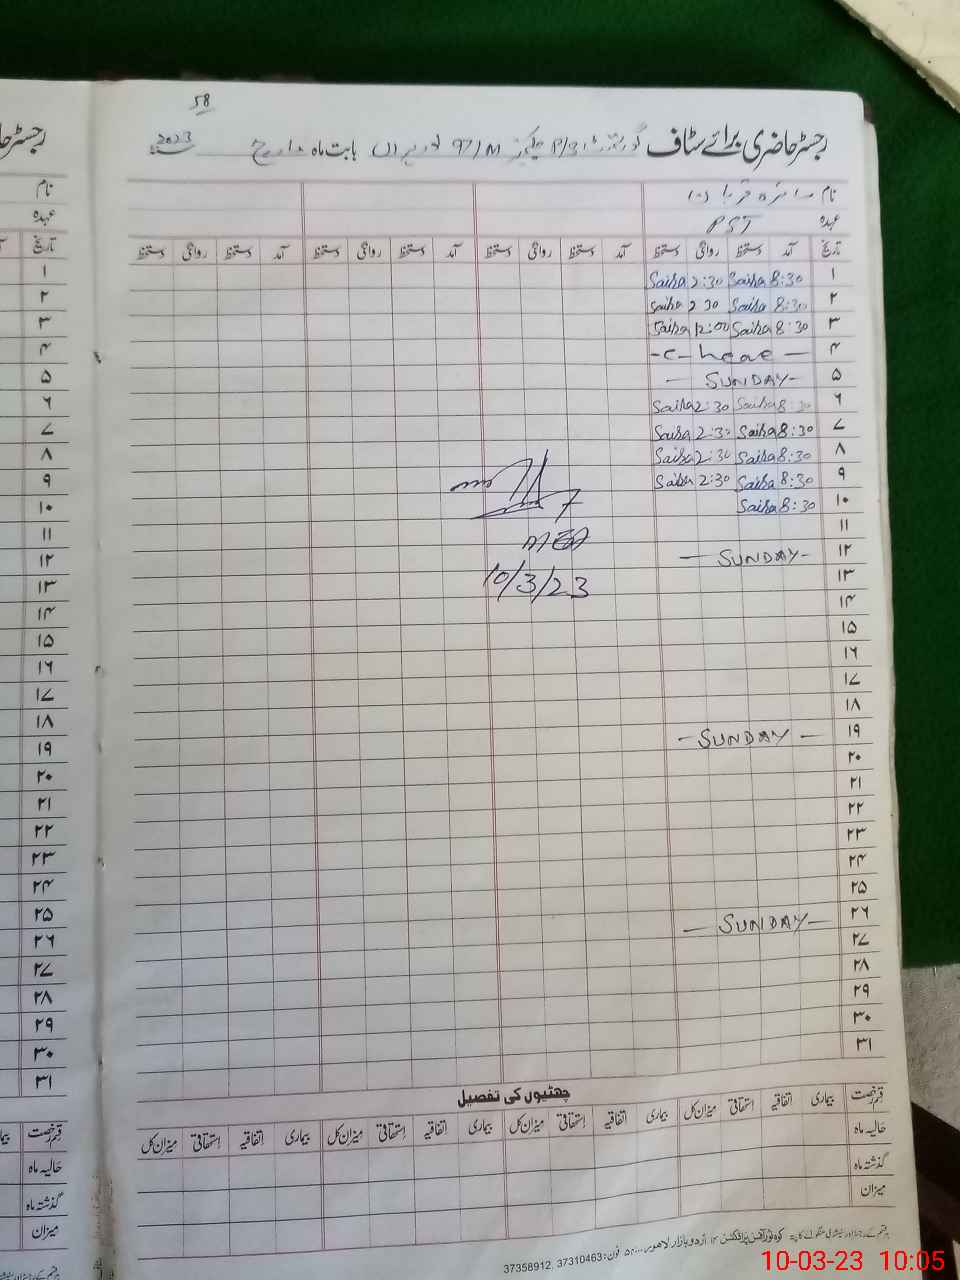 58
رجسٹر حاضری برائے سٹاف گورنمنٹ P/S 97/M لودہراں بابت ماہ مارچ 2023
نام سائرہ قربان
عہدہ PST
تاریخ آمد دستخط روانگی دستخط آمد دستخط روانگی دستخط آمد دستخط روانگی دستخط آمد دستخط روانگی دستخط
۱ 8:30 Saira 2:30 Saira
۲ 8:30 Saira 2 30 Saira
۳ 8:30 Saira 12:00 Saira
۴ - C - leave -
۵ - SUNDAY -
۶ 8:30 Saira 2:30 Saira
۷ 8:30 Saira 2:30 Saira
۸ 8:30 Saira 2:30 Saira
۹ 8:30 Saira 2:30 Saira
۱۰ 8:30 Saira
۱۱
MEA
۱۲ - SUNDAY -
۱۳
10/3/23
۱۴
۱۵
۱۶
۱۷
۱۸
۱۹ - SUNDAY -
۲۰
۲۱
۲۲
۲۳
۲۴
۲۵
۲۶ - SUNDAY -
۲۷
۲۸
۲۹
۳۰
۳۱
چھٹیوں کی تفصیل
قسم رخصت بیماری اتفاقیہ استحقاقی میزان کل بیماری اتفاقیہ استحقاقی میزان کل بیماری اتفاقیہ استحقاقی میزان کل بیماری اتفاقیہ استحقاقی میزان کل
حالیہ ماہ
گذشتہ ماہ
میزان
اردو بازار لاہور فون: 37310463, 37358912
رجسٹر حاضری
نام
عہدہ
تاریخ
۱
۲
۳
۴
۵
۶
۷
۸
۹
۱۰
۱۱
۱۲
۱۳
۱۴
۱۵
۱۶
۱۷
۱۸
۱۹
۲۰
۲۱
۲۲
۲۳
۲۴
۲۵
۲۶
۲۷
۲۸
۲۹
۳۰
۳۱
قسم رخصت
حالیہ ماہ
گذشتہ ماہ
میزان
10-03-23 10:05